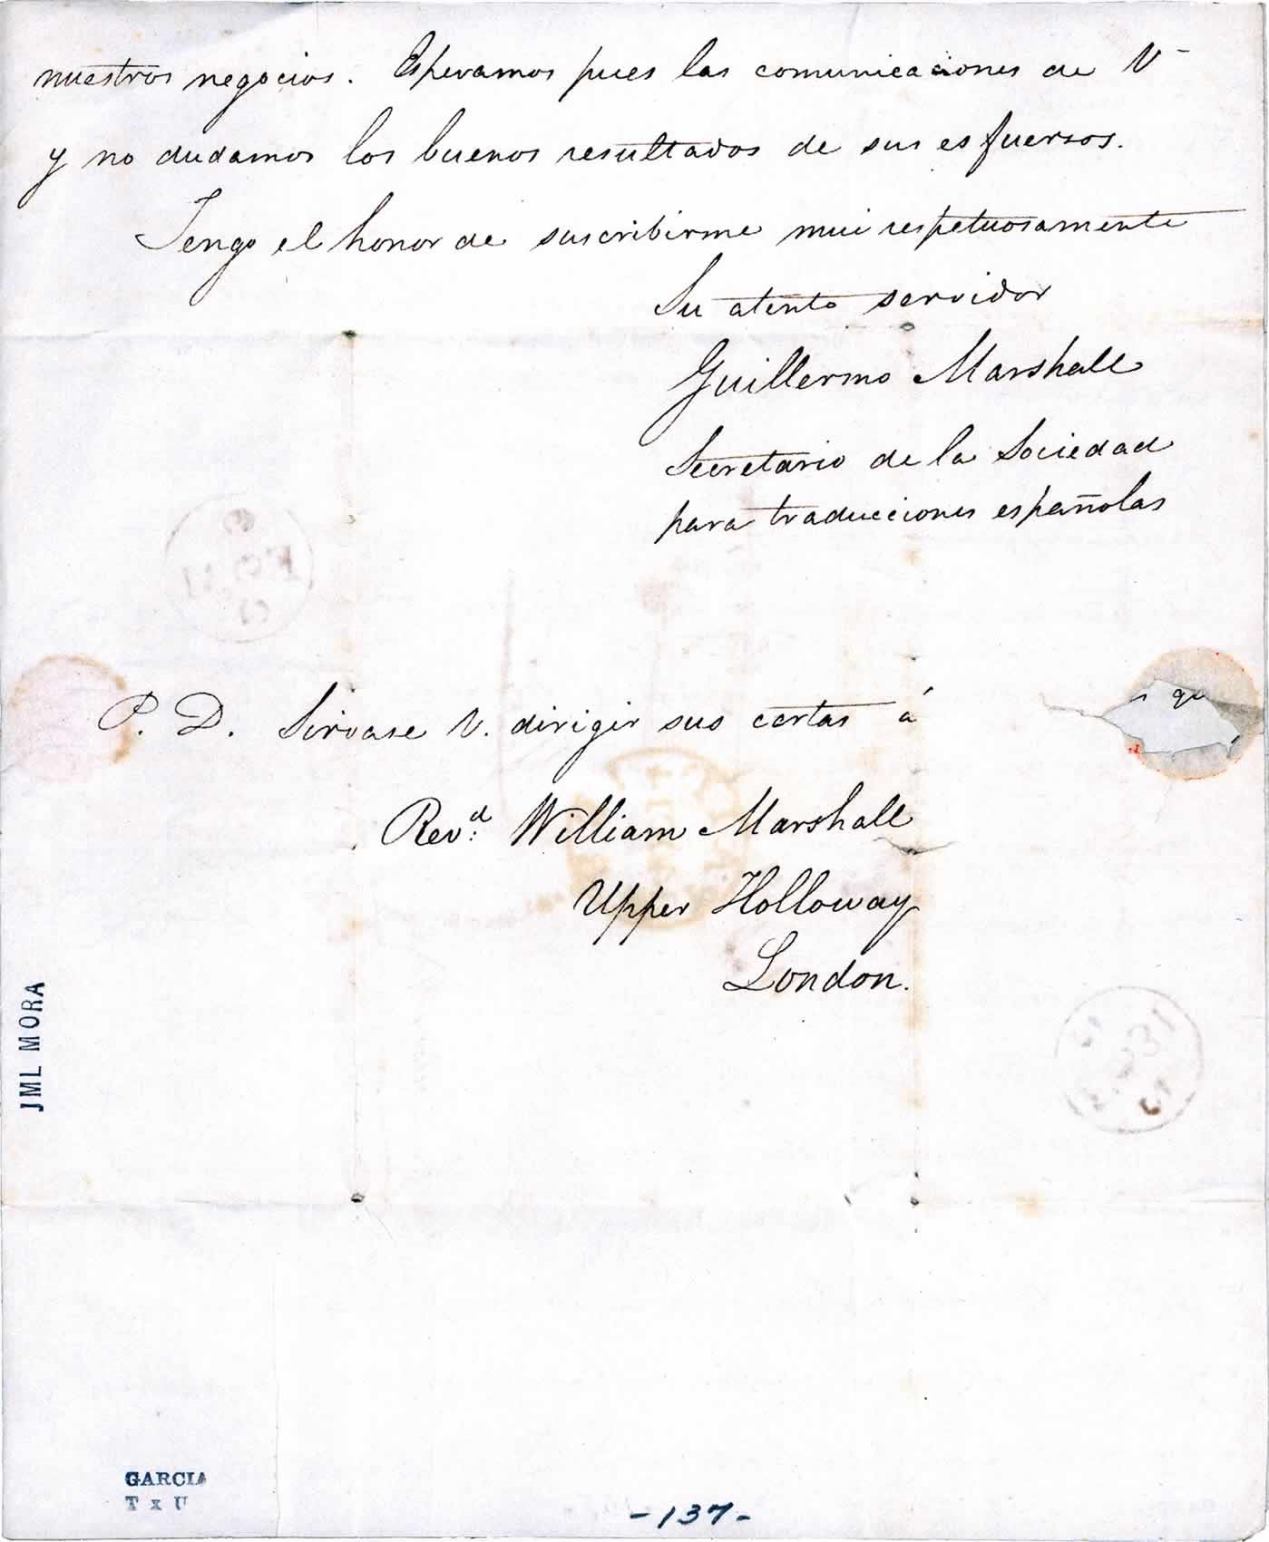 nuestros negocios. Esperamos pues las comunicaciones de V
y no dudamos los buenos resultados de sus esfuersos.
Tengo el honor de suscribirme mui respetuosamente
Su atento servidor
Guillermo Marshall
Secretario de la Sociedad
para traducciones españolas
P. D. Sirvase V. dirigir sus cartas á
qu
Revd. William Marshall
Upper Holloway
London.
JML MORA
GARCIA
T x U
-137-